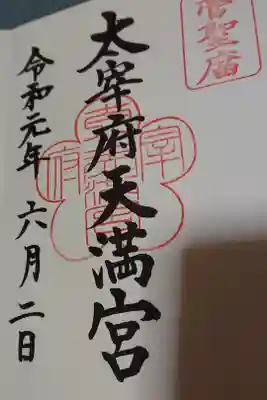 菅聖庙
太宰府天満宮
令和元年 六月二日